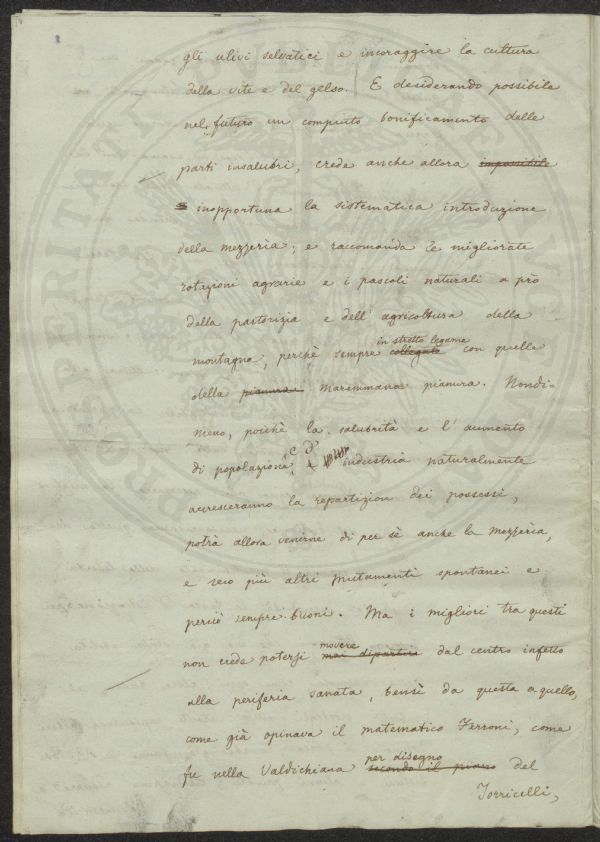 gli ulivi selvatici e incoraggire la cultura
della vite e del gelso. E desiderando possibile
nel futuro un compiuto bonificamento delle
parti insalubri, crede anche allora impossibile
inopportuna la sistematica introduzione
della mezzeria; e raccomanda le migliorate
rotazioni agrarie e i pascoli naturali a prò
della pastorizia e dell' agricoltura della
montagna, perchè sempre collegate in stretto legame con quella
della pianura maremmana pianura. Nondi-
meno, poichè la salubrità e l' aumento
di popolazione e d' industria naturalmente
accresceranno la repartizion dei possessi,
potrà allora venirne di per sè anche la mezzeria,
e seco più altri mutamenti spontanei e
perciò sempre buoni. Ma i migliori tra questi
non crede potersi mai dipartire movere dal centro infetto
alla periferia sanata, bensì da questa a quello,
come già opinava il matematico Ferroni, come
fu nella Valdichiana secondo il piano per disegno del
Torricelli,